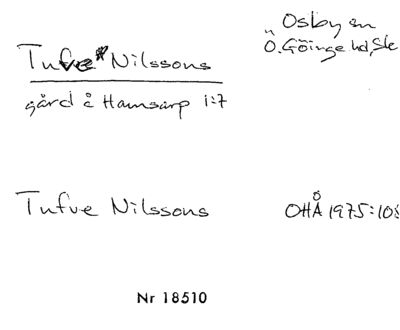 Osby sn
Ö. Göinge hd, Sk
Tufve* Nilssons
gård å Hamsarp 1:7
Tufve Nilssons
OHÅ 1975:108
Nr 18510